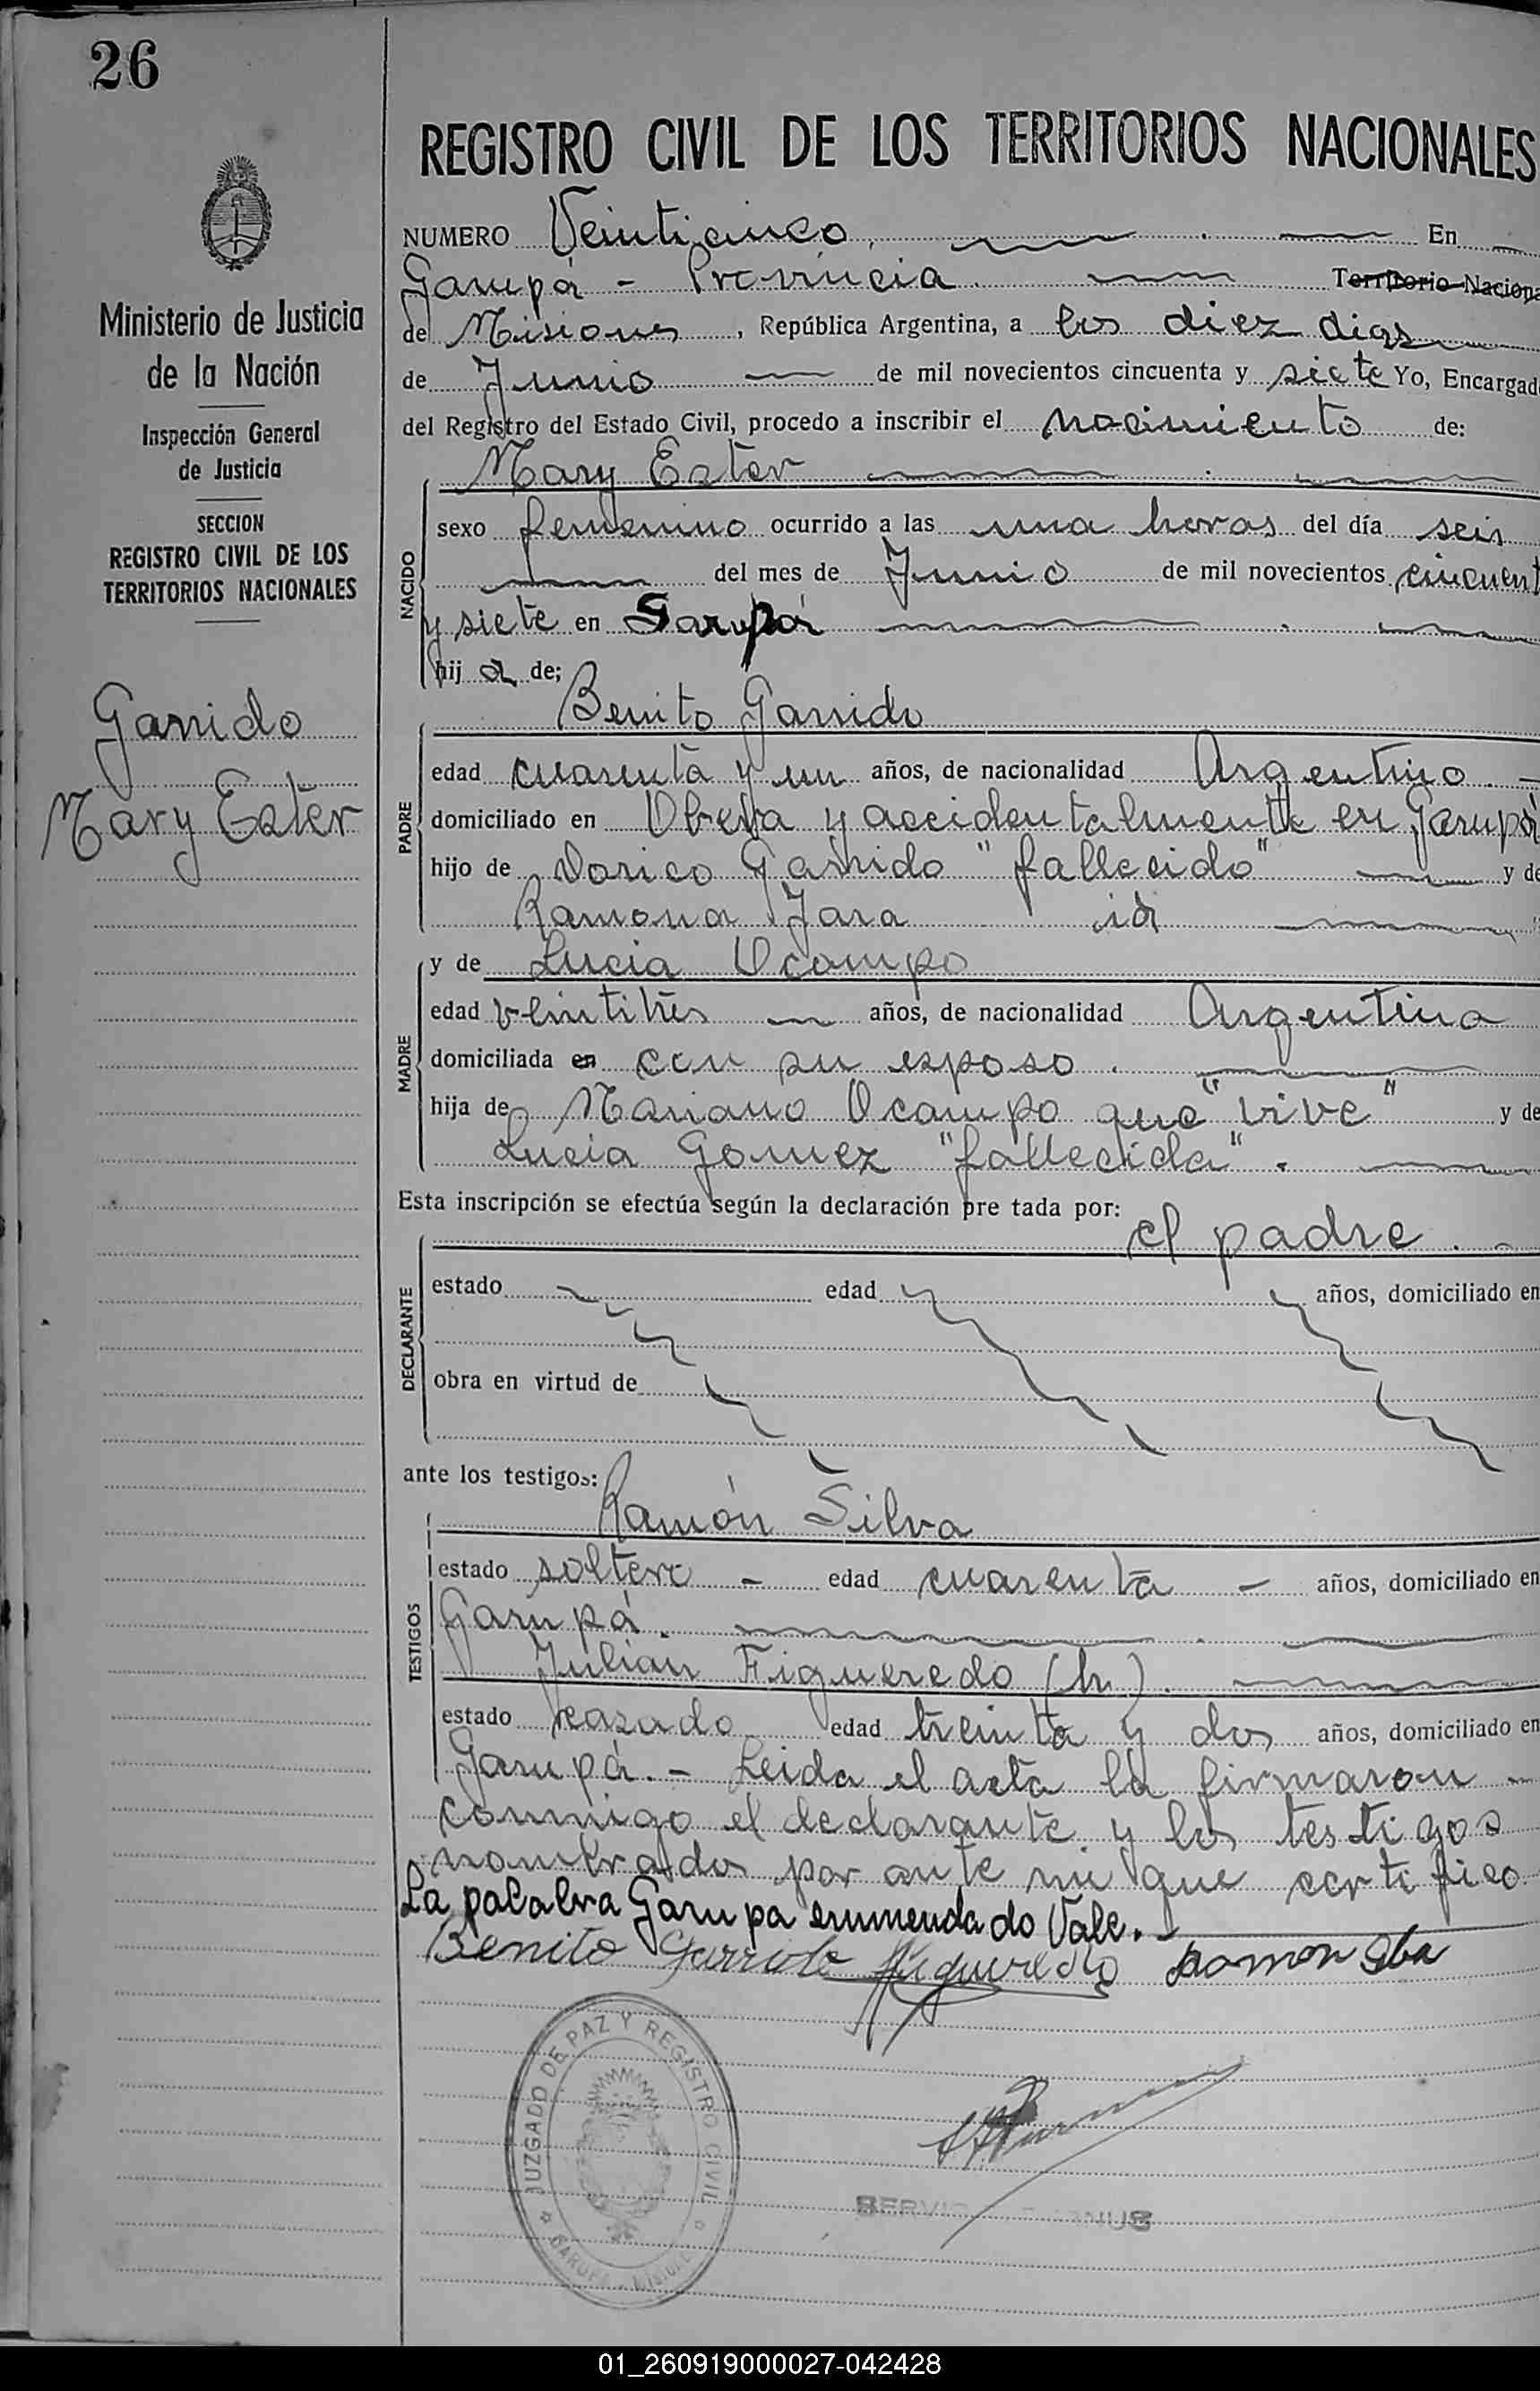 26
REGISTRO CIVIL DE LOS TERRITORIOS NACIONALES
NUMERO Veinticinco. En
Garupá - Provincia. Territorio Naciona
de Misiones, República Argentina, a los diez dias
de Junio de mil novecientos cincuenta y siete Yo, Encargad
del Registro del Estado Civil, procedo a inscribir el nacimiento de:
Mary Ester
sexo femenino ocurrido a las una horas del día seis
del mes de Junio de mil novecientos cincuent
y siete en Garupá
hij a de;
NACIDO
Benito Garrido
edad cuarenta y un años, de nacionalidad Argentino
domiciliado en Obera y accidentalmente en Garupá
hijo de Dorico Garrido "fallecido" y de
Ramona Jara id
PADRE
y de Lucia Ocampo
edad veintitrés años, de nacionalidad Argentina
domiciliada en con su esposo.
hija de Mariano Ocampo que "vive" y de
Lucia Gomez "fallecida".
MADRE
Esta inscripción se efectúa según la declaración pre tada por:
el padre.
estado edad años, domiciliado en
obra en virtud de
DECLARANTE
ante los testigos:
Ramón Silva
estado soltero - edad cuarenta - años, domiciliado en
Garupá.
Julian Figueredo (h).
estado casado edad treinta y dos años, domiciliado en
TESTIGOS
Garupá.- Leida el acta la firmaron
conmigo el declarante y los testigos
nombrados por ante mi que certifico.
La palabra Garupa enmendado Vale.-
Benito Garrido Figueredo Ramon Silva
Ministerio de Justicia
de la Nación
Inspección General
de Justicia
SECCION
REGISTRO CIVIL DE LOS
TERRITORIOS NACIONALES
Garrido
Mary Ester
JUZGADO DE PAZ Y REGISTRO CIVIL
GARUPA - MISIONES
01_260919000027-042428